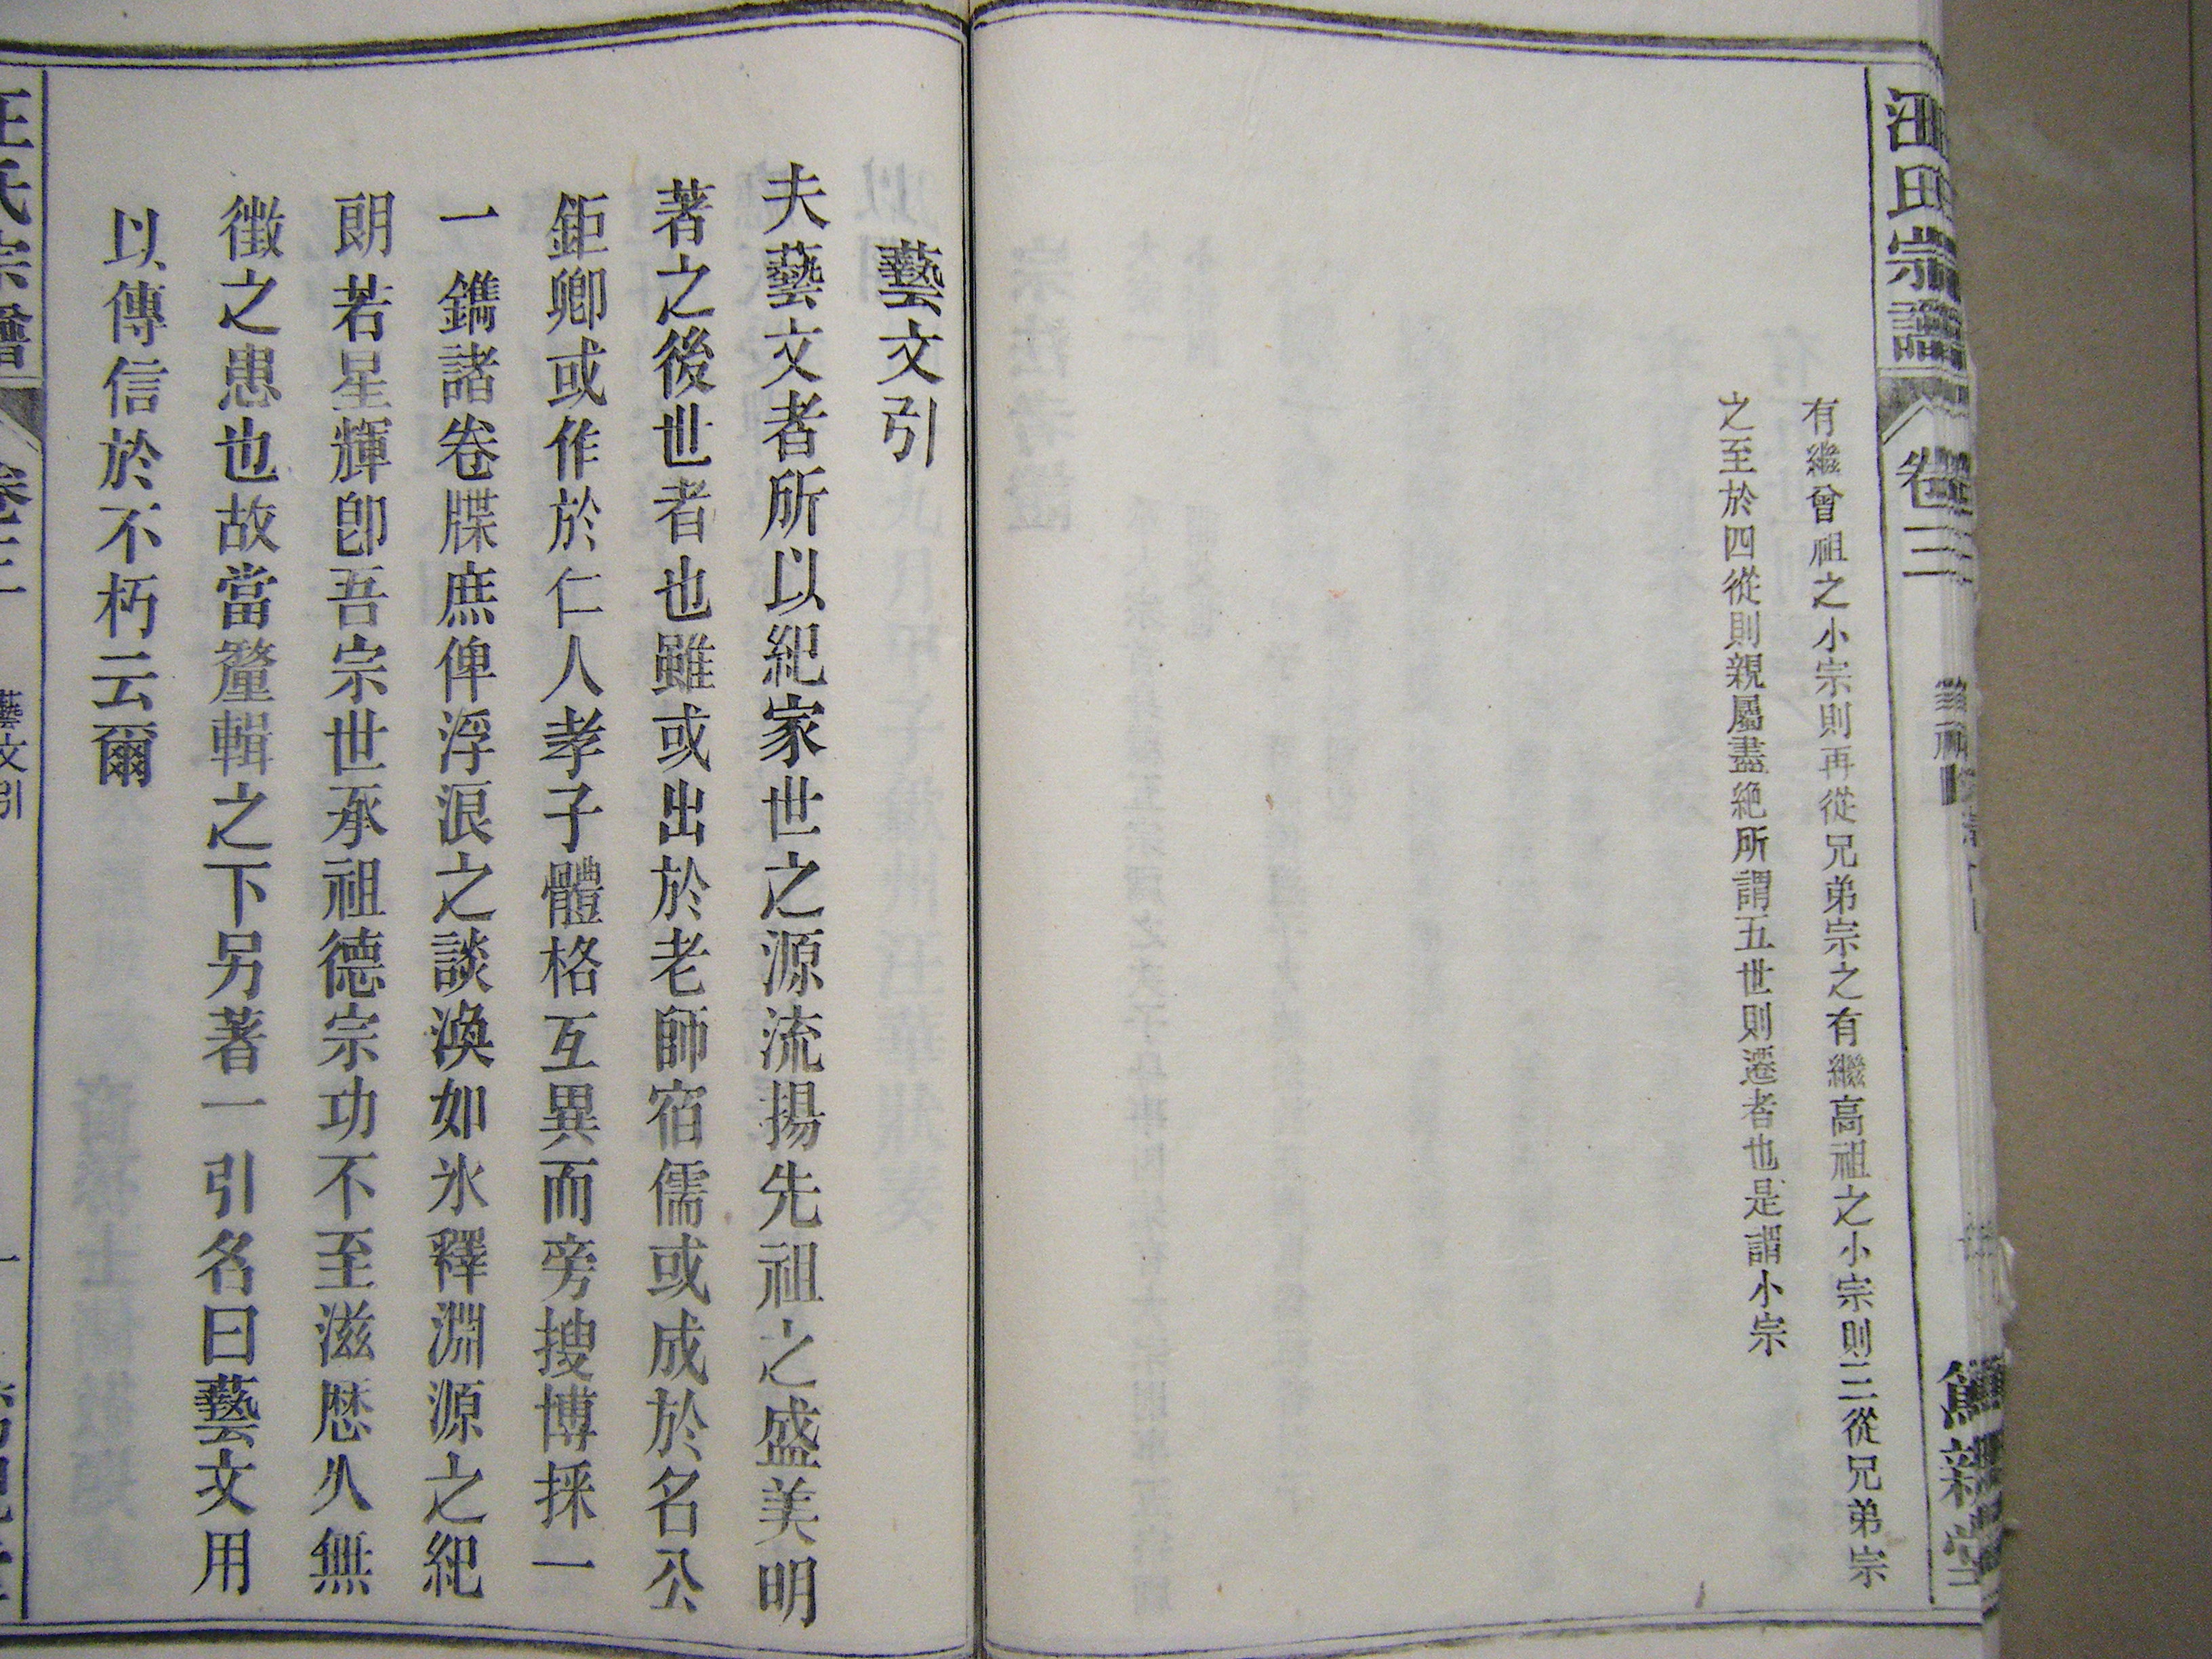 汪氏宗譜
卷三
有繼曾祖之小宗則再從兄弟宗之有繼高祖之小宗則三從兄弟宗
之至於四從則親屬盡絶所謂五世則遷者也是謂小宗
藝文引
夫藝文者所以紀家世之源流揚先祖之盛美明
著之後世者也雖或出於老師宿儒或成於名公
鉅卿或作於仁人孝子體格互異而旁搜博採一
一鐫諸卷牒庶俾浮浪之談渙如氷釋淵源之紀
朗若星輝卽吾宗世承祖德宗功不至滋歷久無
徵之患也故當釐輯之下另著一引名曰藝文用
以傳信於不朽云爾
汪氏宗譜
卷三
藝文引
一